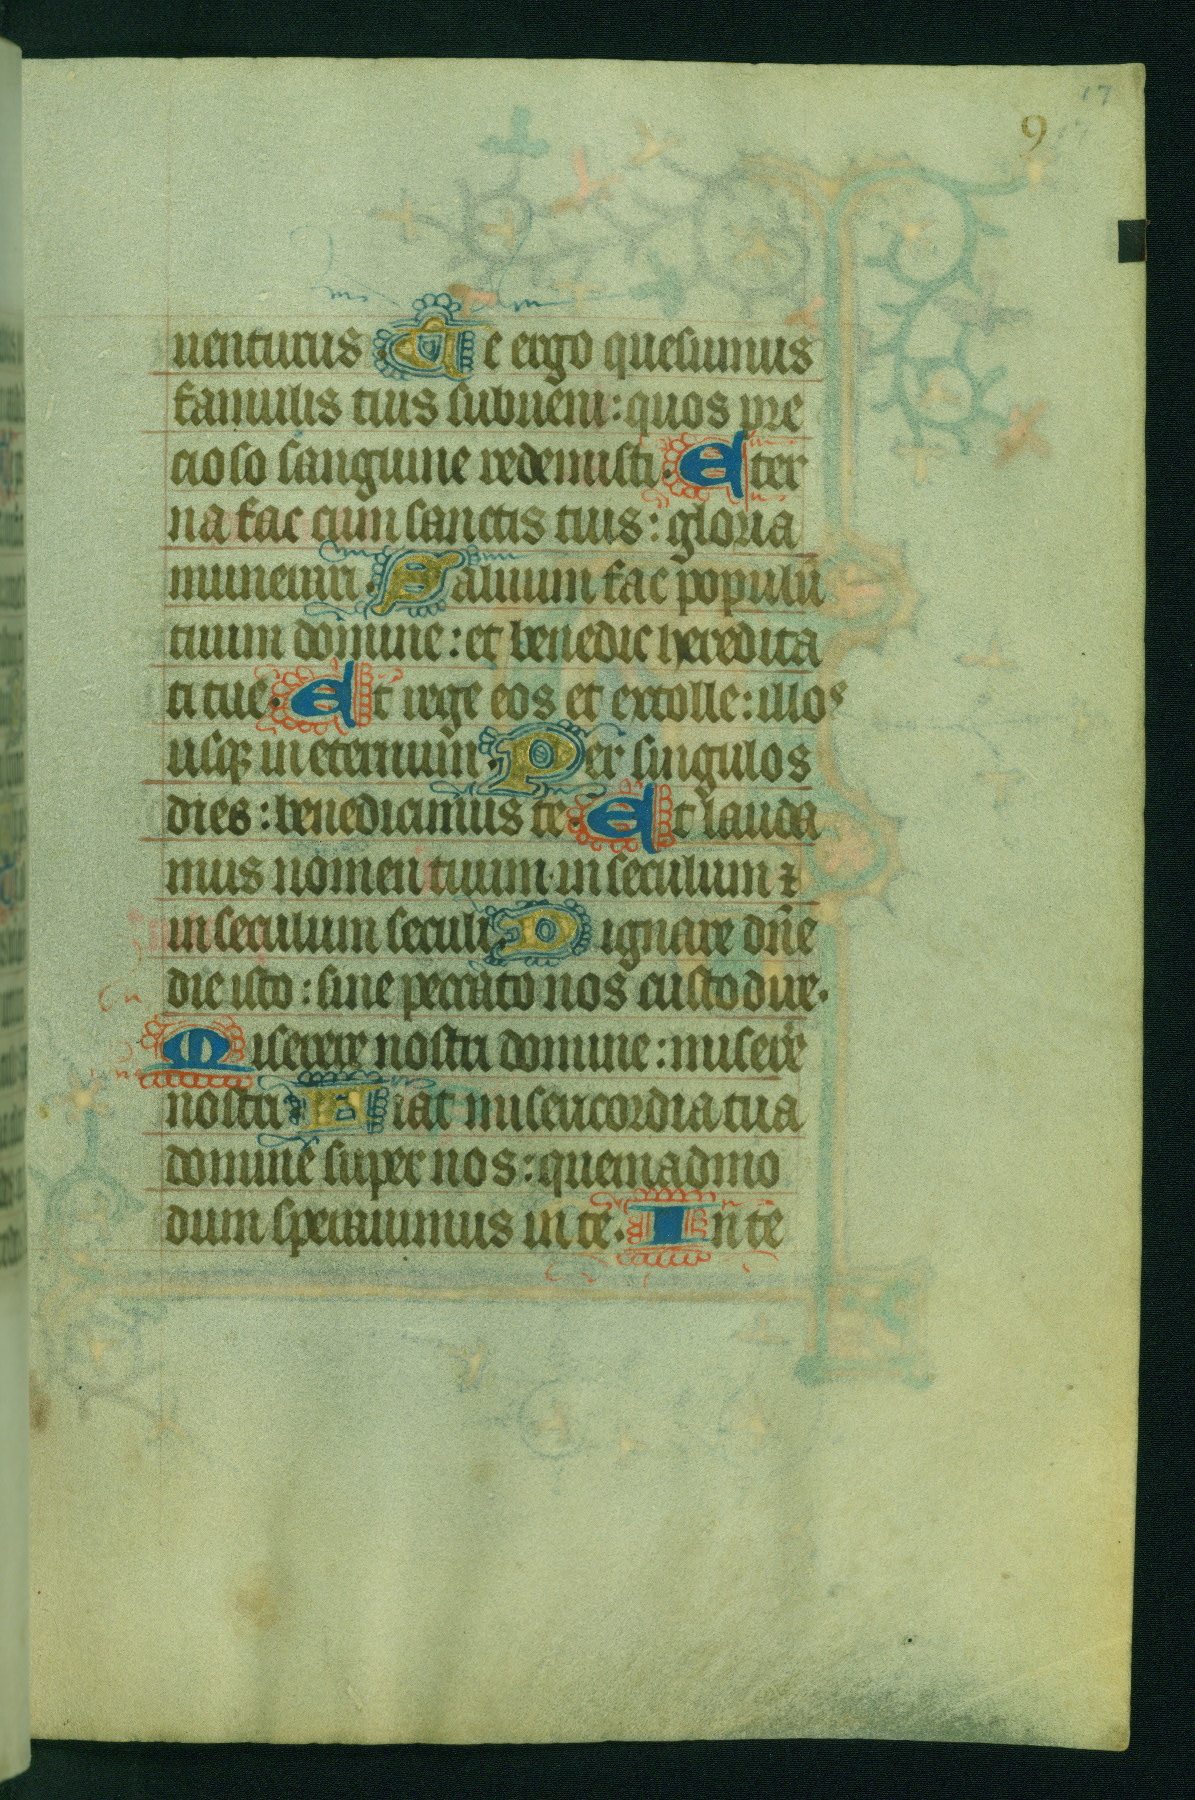 17
9 17
uenturus Te ergo quesumus
famulis tuis subueni: quos pre
cioso sanguine redemisti. Eter
na fac cum sanctis tuis: gloria
munerari. Saluum fac populū
tuum domine: et benedic heredita
ti tue. Et rege eos et extolle: illos
usqꝫ in eternum. Per singulos
dies: benedicimus te. Et lauda
mus nomen tuum. in seculum ⁊
in seculum seculi. Dignare dn̄e
die isto: sine peccato nos custodire.
Miserere nostri domine: misere
nostri Fiat misericordia tua
domine super nos: quemadmo
dum sperauimus in te. In te